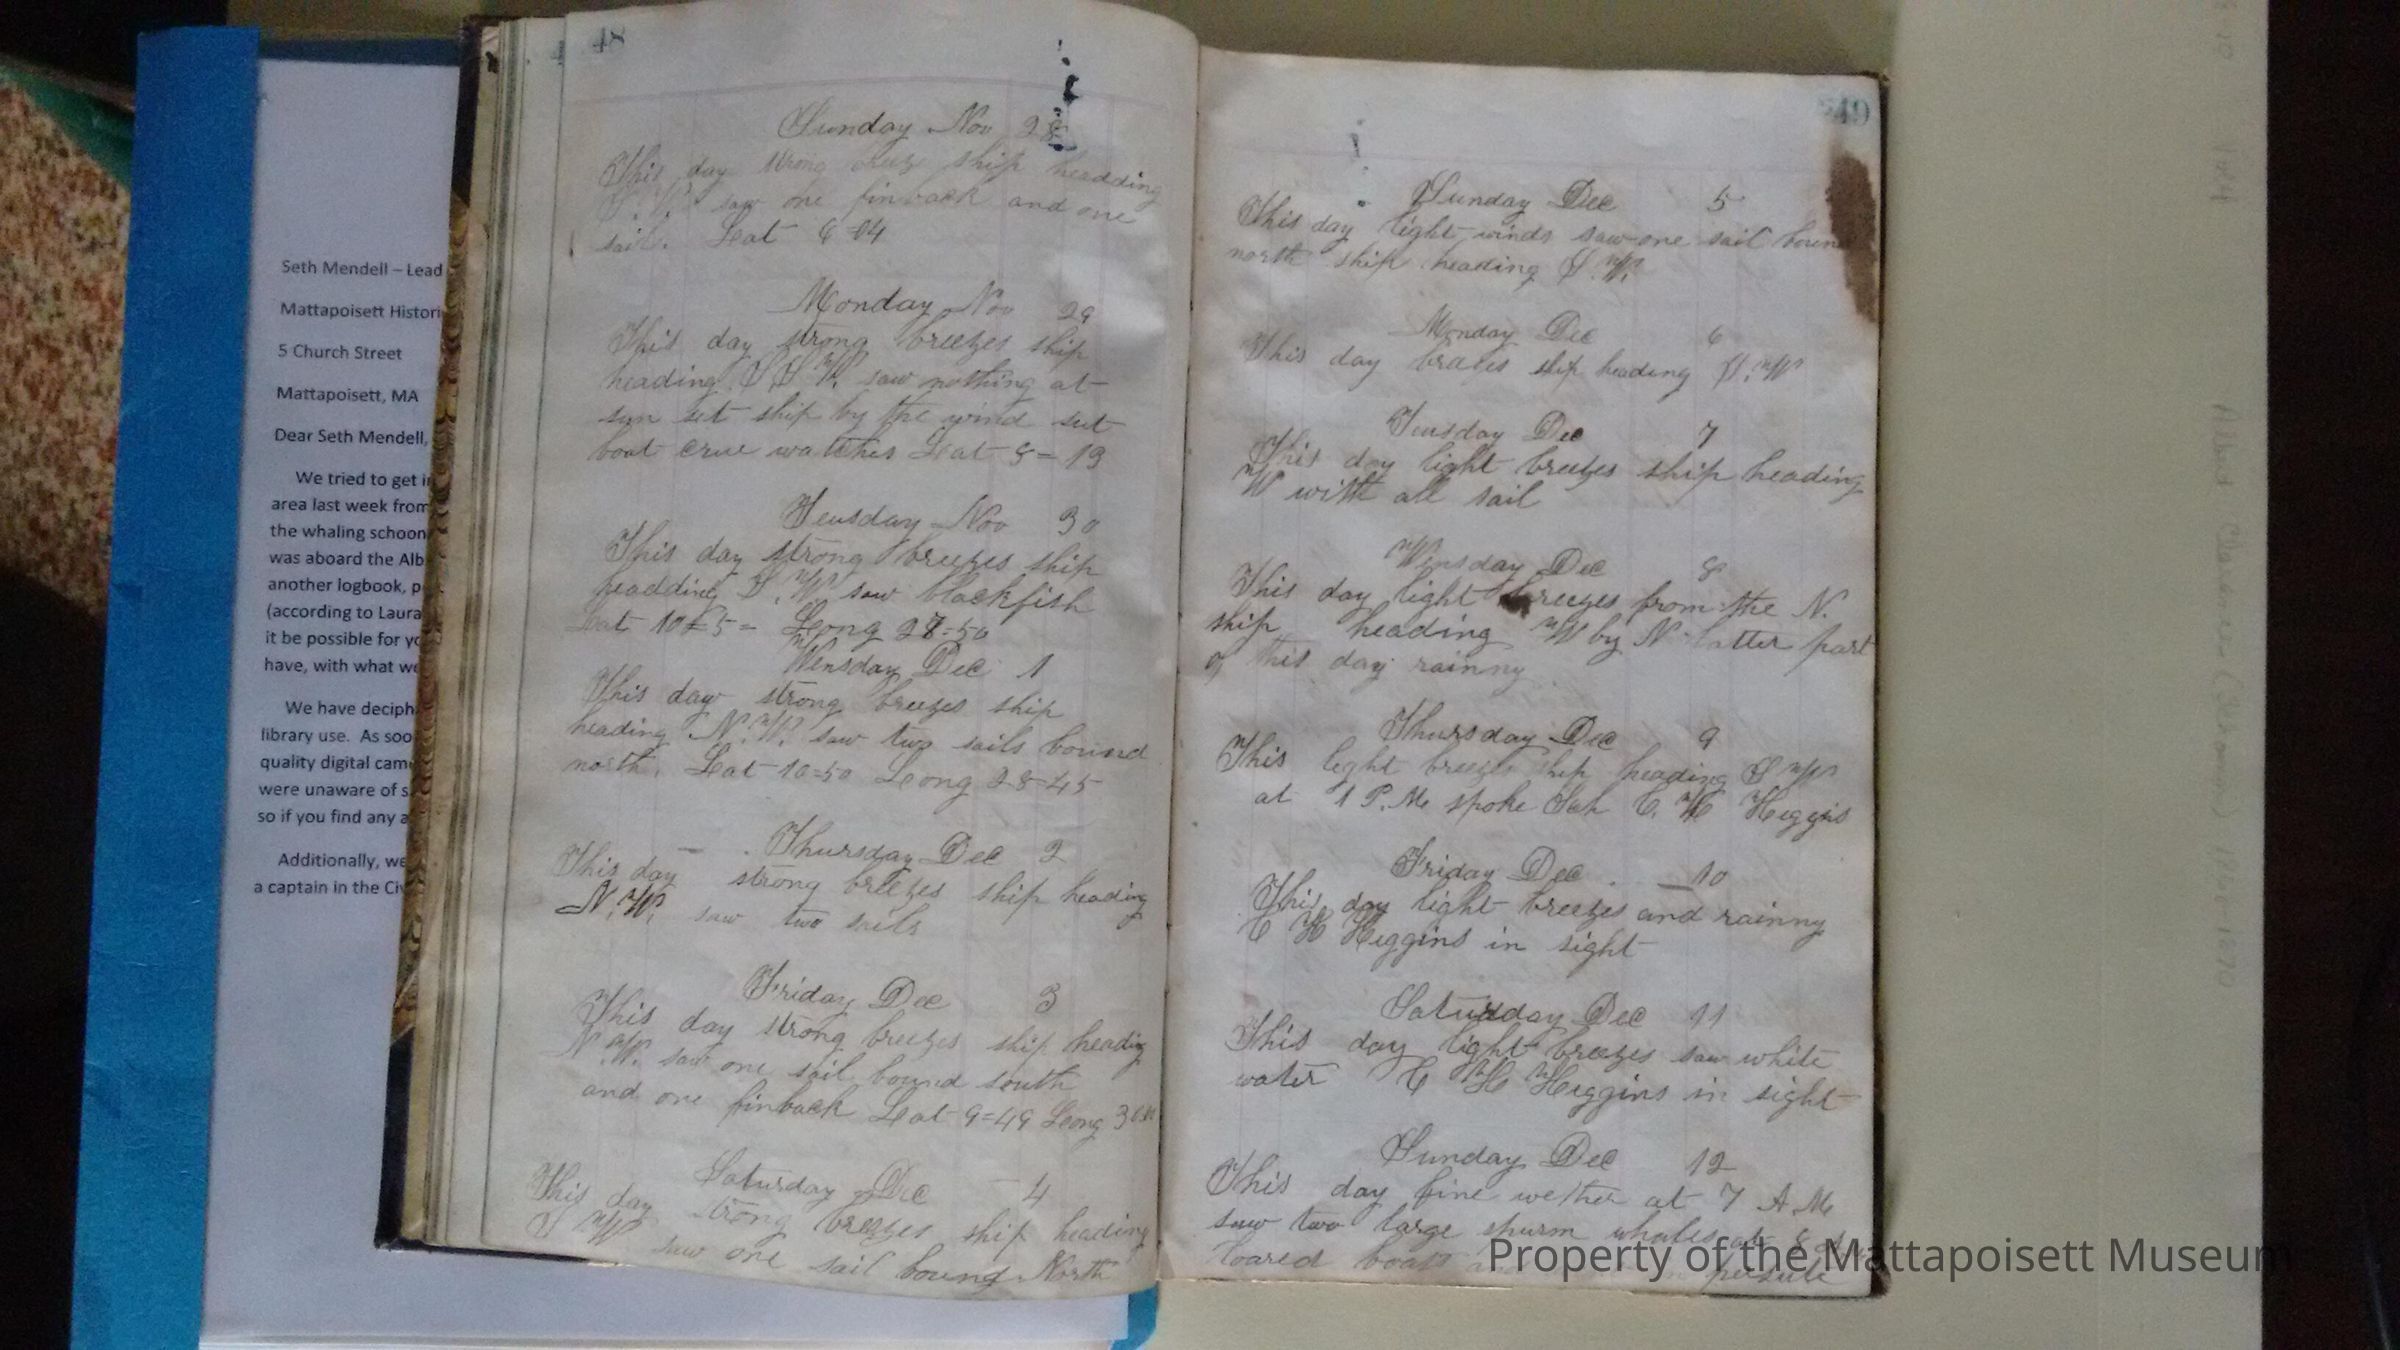 48
Sunday Nov 28
This day strong breeze ship headding
S.W. saw one finback and one
sail. Leat 6=04
Monday Nov 29
This day strong breezes ship
heading S.S.W. saw nothing at
sun set ship by the wind set
boat crue watches Leat 8=13
Teusday Nov 30
This day strong breezes ship
headding S.W. saw blackfish
Leat 10=5= Leong 27=50
Wensday Dec 1
This day strong breezes ship
heading N.W. saw two sails bound
north. Leat 10=50 Leong 28=45
Thursday Dec 2
This day strong breezes ship heading
N.W. saw two sails
Friday Dec 3
This day strong breezes ship heading
N.W. saw one sail bound south
and one finback Leat 9=49 Leong
Saturday Dec 4
This day strong breezes ship heading
S W saw one sail bound North
49
Sunday Dec 5
This day light winds saw one sail boun
north ship heading S.W.
Monday Dec 6
This day ship heading S.W
Teusday Dec 7
This day light breezes ship heading
W with all sail
Wensday Dec 8
This day light breezes from the N.
ship heading W by N latter part
of this day rainny
Thursday Dec 9
This light breezes ship heading S W
at 1 P.M. spoke Sch C. H Higgins
Friday Dec 10
This day light breezes and rainny
C H Higgins in sight
Saturday Dec 11
This day light breezes saw white
water C H Higgins in sight
Sunday Dec 12
This day fine wether at 7 A.M.
saw two large spurm whales at 8 A
loared boats persute
Seth Mendell – Lead
Mattapoisett Histori
5 Church Street
Mattapoisett, MA
Dear Seth Mendell,
We tried to get i
area last week from
the whaling schoon
was aboard the Alb
another logbook, p
(according to Laura
it be possible for yo
have, with what we
We have deciph
library use. As soo
quality digital cam
were unaware of s
so if you find any a
Additionally, we
a captain in the Civ
Property of the Mattapoisett Museum